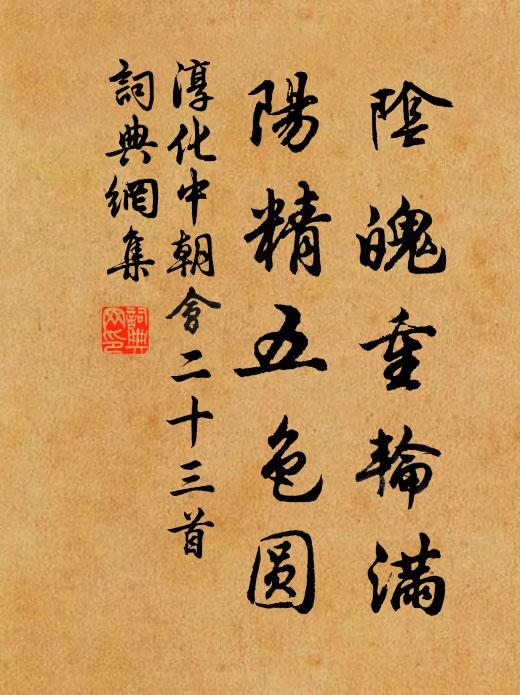 陰魄重輪滿
陽精五色圆
淳化中朝會二十三首
詞典網集
詞典网印